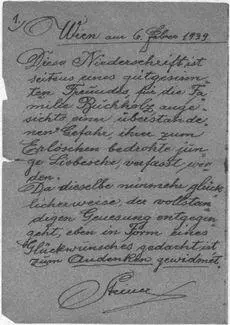 1.
Wien am 6. Feber 1939
Diese Niederschrift, ist
seitens eines gutgesinn-
ten Freundes, für die Fa-
milie Reichholz, ange-
sichts einer überstande-
nen Gefahr, ihrer zum
Erlöschen bedrohte jün-
ge Liebesche, verfasst wor-
den.
Da dieselbe nunmehr glück-
licherweise, der vollstän-
digen Genesung entgegen-
geht, eben in Form eines
Glückwunsches gedacht ist
zum Andenken gewidmet.